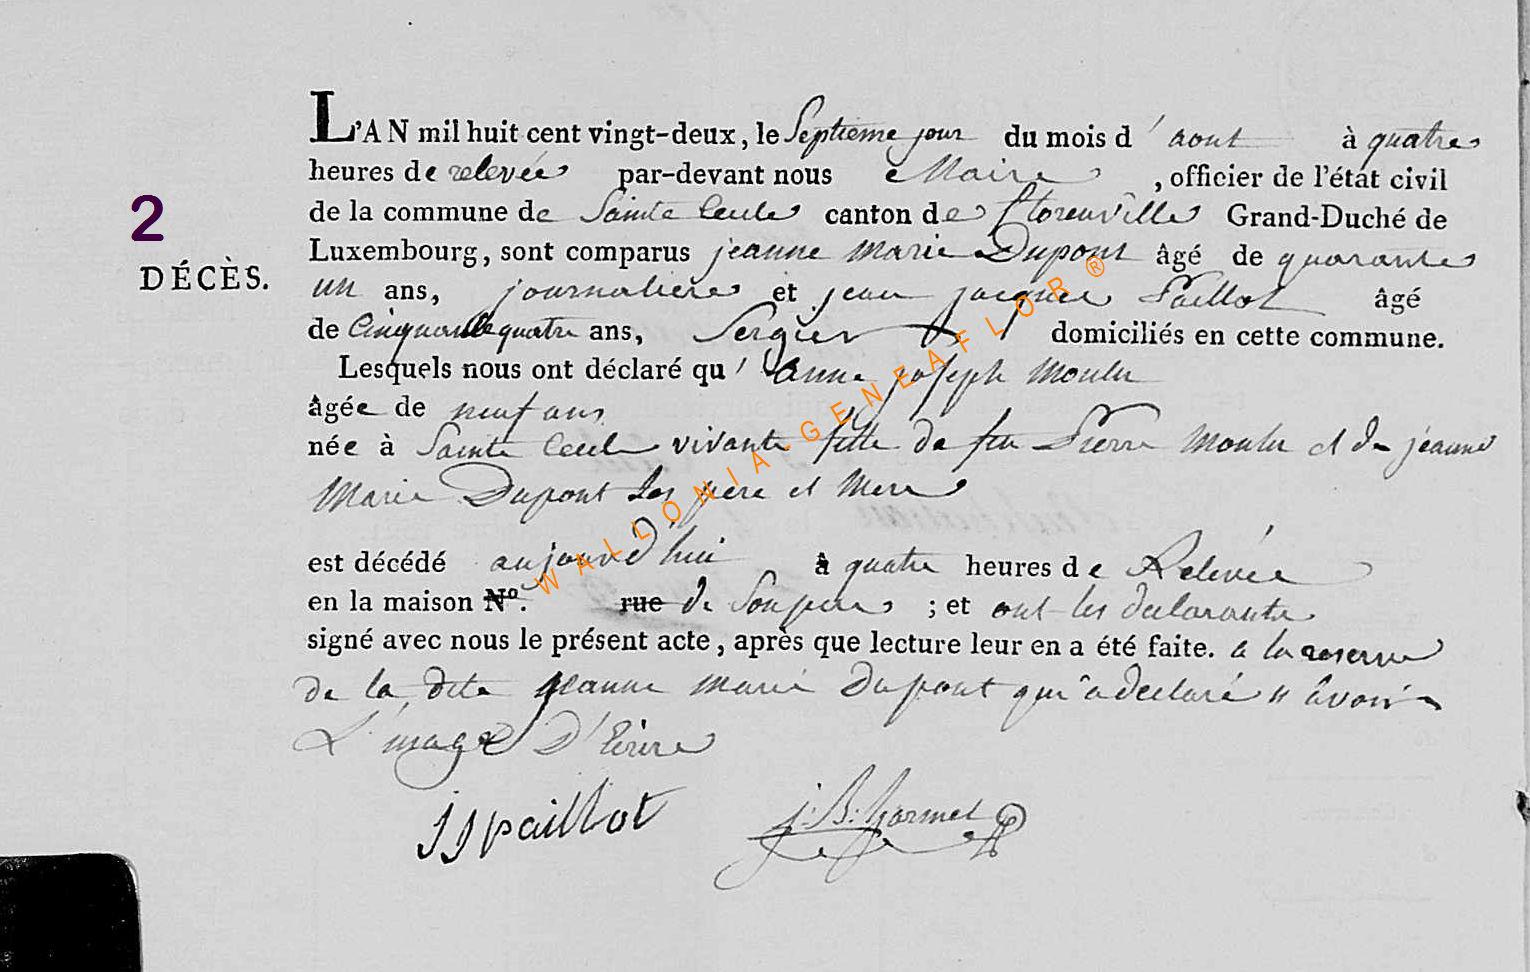 L'AN mil huit cent vingt-deux, le Septieme jour du mois d'aout à quatre
heures de relevée par-devant nous Maire, officier de l'état civil
2
de la commune de Sainte Cecile canton de florenville Grand-Duché de
Luxembourg, sont comparus jeanne Marie Dupont âgé de quarante
DÉCÈS.
un ans, journaliere et jean jacques Paillot âgé
de Cinquante quatre ans, Sergier domiciliés en cette commune.
Lesquels nous ont déclaré qu'anne joseph Moulu
âgée de neuf ans
née à Sainte Cecile vivante fille de feu Pierre Moulu et de jeanne
Marie Dupont Ses pere et Mere
est décédé aujourd'hui à quatre heures de Relevée
en la maison No. rue de Son pere ; et ont les declarants
signé avec nous le présent acte, après que lecture leur en a été faite. a la reserve
de la dite jeanne Marie Dupont qui a declaré n'avoir
L'usage D'Ecrire
JJ paillot
j: B: hormel
WALLONIA-GENEAFLOR®